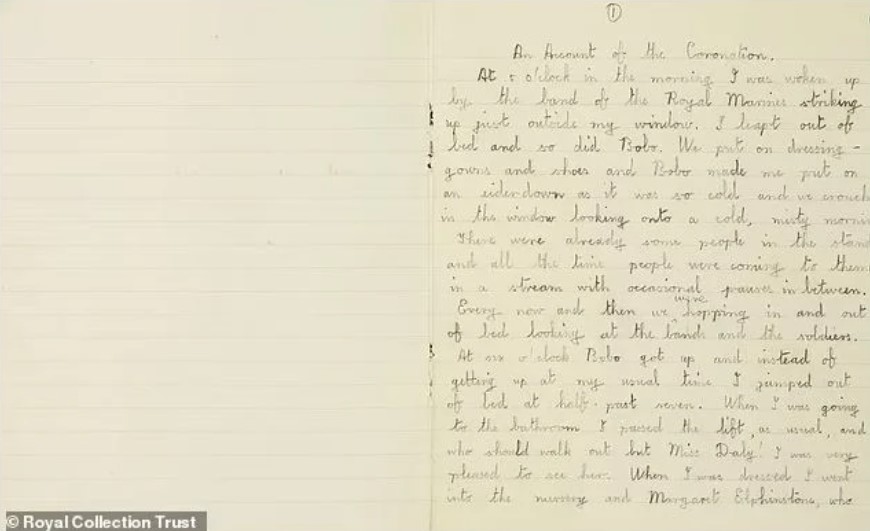 1
An Account of the Coronation.
At 5 o'clock in the morning I was woken up
by the band of the Royal Marines striking
up just outside my window. I leapt out of
bed and so did Bobo. We put on dressing-
gowns and shoes and Bobo made me put on
an eiderdown as it was so cold and we crouch
in the window looking onto a cold, misty morni
There were already some people in the stand
and all the time people were coming to them
in a stream with occasional pauses in between.
Every now and then we were hopping in and out
of bed looking at the bands and the soldiers.
At six o'clock Bobo got up and instead of
getting up at my usual time I jumped out
of bed at half-past seven. When I was going
to the bathroom I passed the lift, as usual, and
who should walk out but Miss Daly! I was very
pleased to see her. When I was dressed I went
into the nursery and Margaret Elphinstone, who
© Royal Collection Trust